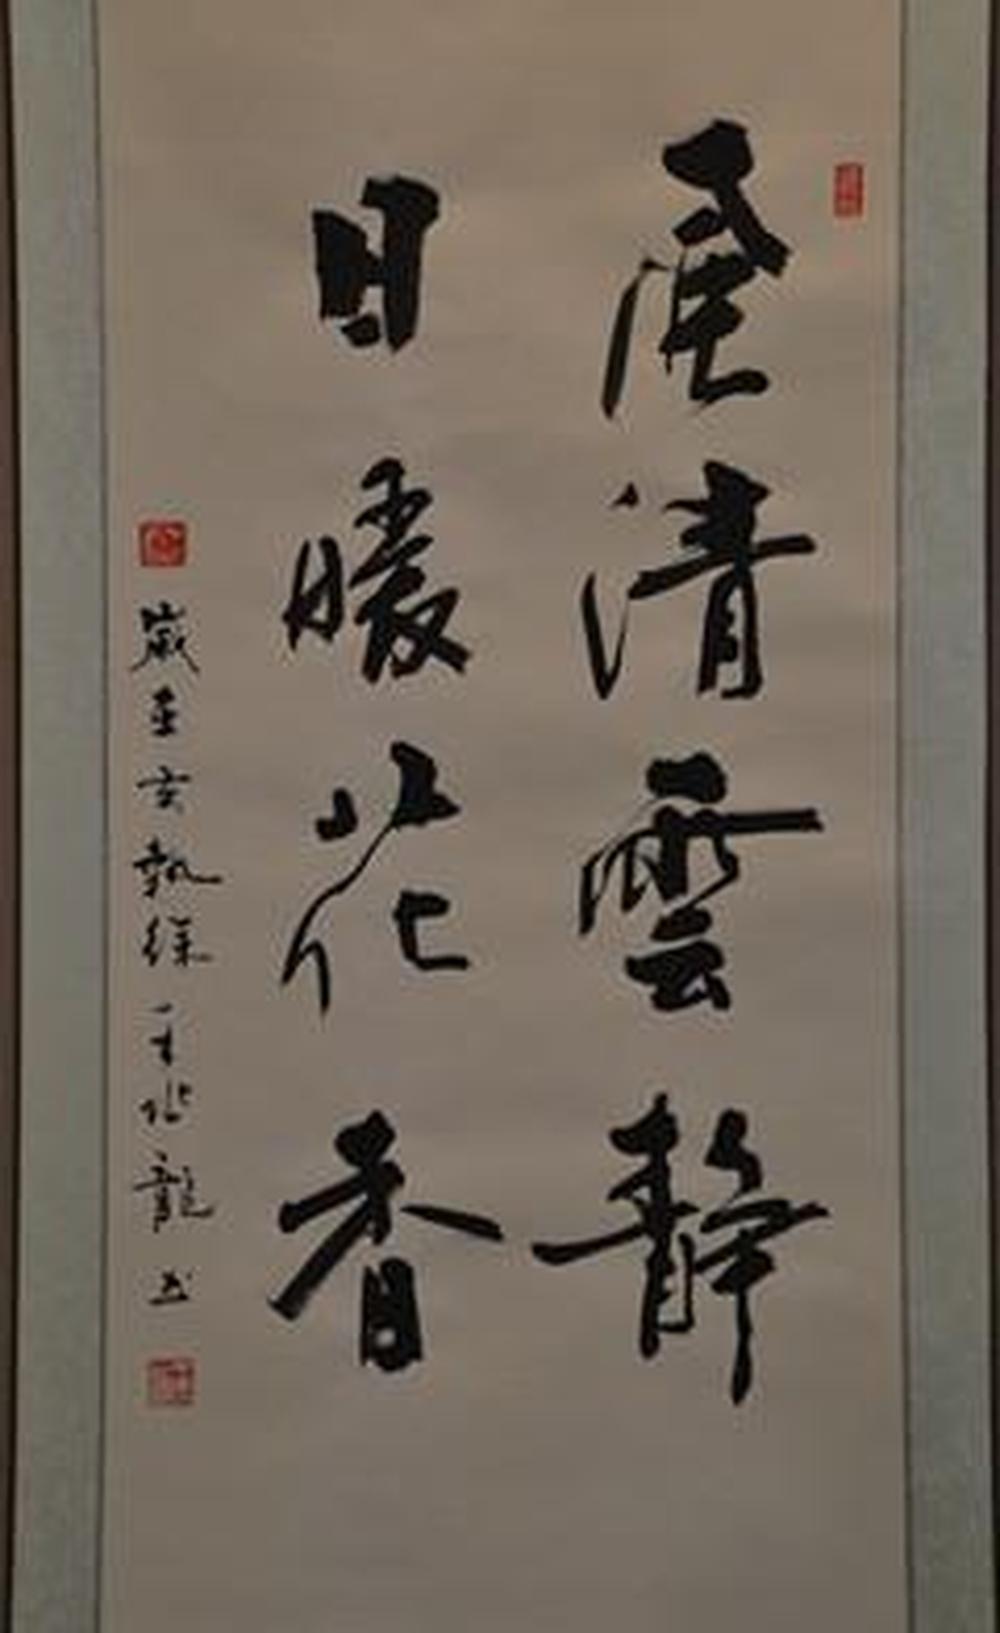 風清雲靜
日暖花香
歲在亥執徐
龍書